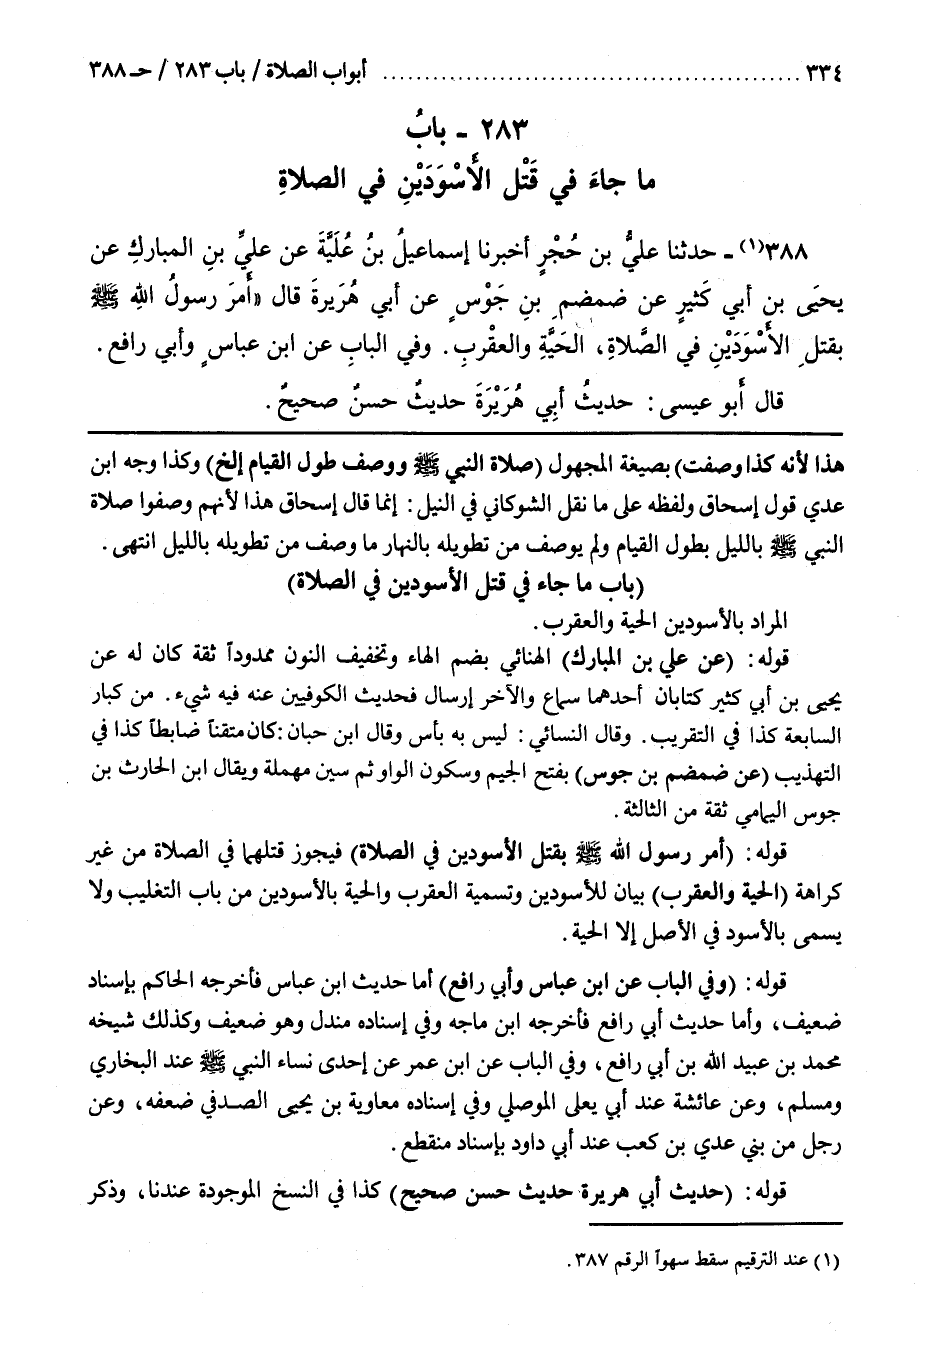 ٣٣٤ ................................................ أبواب الصلاة / باب ٢٨٣ / حـ ٣٨٨
٢٨٣ - بابُ
ما جاءَ في قَتْل الأَسْوَدَيْنِ في الصلاةِ
٣٨٨(١) - حدثنا عليُّ بن حُجْرٍ أخبرنا إسماعيلُ بنُ عُلَيَّةَ عن عليِّ بنِ المباركِ عن
يحيَى بن أبي كَثيرٍ عن ضمضم بنِ جَوْسٍ عن أبي هُرَيرةَ قال «أَمرَ رسولُ اللهِ ﷺ
بقتلِ الأَسْوَدَيْنِ في الصَّلاةِ، الحَيَّةِ والعقْربِ. وفي البابِ عن ابن عباسٍ وأبي رافع.
قال أَبو عيسى: حديثُ أبِي هُرَيْرَةَ حديثٌ حسنٌ صحيحٌ.
هذا لأنه كذا وصفت) بصيغة المجهول (صلاة النبي ﷺ ووصف طول القيام إلخ) وكذا وجه ابن
عدي قول إسحاق ولفظه على ما نقل الشوكاني في النيل: إنما قال إسحاق هذا لأنهم وصفوا صلاة
النبي ﷺ بالليل بطول القيام ولم يوصف من تطويله بالنهار ما وصف من تطويله بالليل انتهى.
(باب ما جاء في قتل الأسودين في الصلاة)
المراد بالأسودين الحية والعقرب.
قوله: (عن علي بن المبارك) الهنائي بضم الهاء وتخفيف النون ممدوداً ثقة كان له عن
يحيى بن أبي كثير كتابان أحدهما سماع والآخر إرسال فحديث الكوفيين عنه فيه شيء. من كبار
السابعة كذا في التقريب. وقال النسائي: ليس به بأس وقال ابن حبان :كان متقناً ضابطاً كذا في
التهذيب (عن ضمضم بن جوس) بفتح الجيم وسكون الواو ثم سين مهملة ويقال ابن الحارث بن
جوس اليمامي ثقة من الثالثة.
قوله: (أمر رسول الله ﷺ بقتل الأسودين في الصلاة) فيجوز قتلهما في الصلاة من غير
كراهة (الحية والعقرب) بيان للأسودين وتسمية العقرب والحية بالأسودين من باب التغليب ولا
يسمى بالأسود في الأصل إلا الحية.
قوله: (وفي الباب عن ابن عباس وأبي رافع) أما حديث ابن عباس فأخرجه الحاكم بإسناد
ضعيف، وأما حديث أبي رافع فأخرجه ابن ماجه وفي إسناده مندل وهو ضعيف وكذلك شيخه
محمد بن عبيد الله بن أبي رافع، وفي الباب عن ابن عمر عن إحدى نساء النبي ﷺ عند البخاري
ومسلم، وعن عائشة عند أبي يعلى الموصلي وفي إسناده معاوية بن يحيى الصدفي ضعفه، وعن
رجل من بني عدي بن كعب عند أبي داود بإسناد منقطع.
قوله: (حديث أبي هريرة حديث حسن صحيح) كذا في النسخ الموجودة عندنا، وذكر
(١) عند الترقيم سقط سهواً الرقم ٣٨٧.